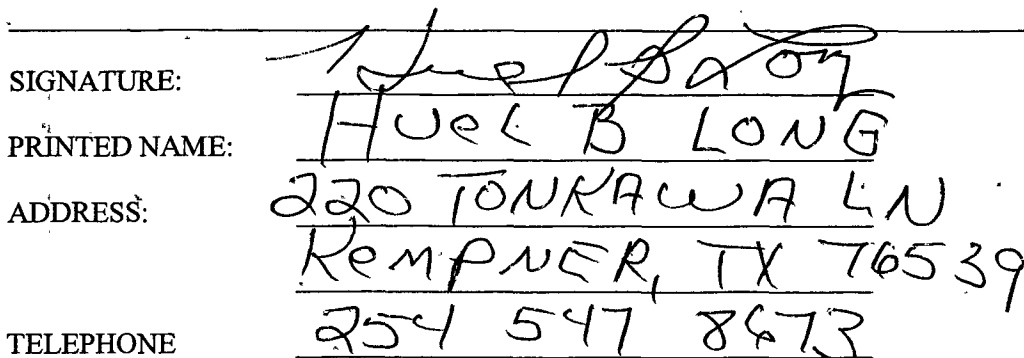 SIGNATURE: Huel B Long
PRINTED NAME: HUEL B LONG
ADDRESS: 220 TONKAWA LN
KEMPNER, TX 76539
TELEPHONE 254 547 8673